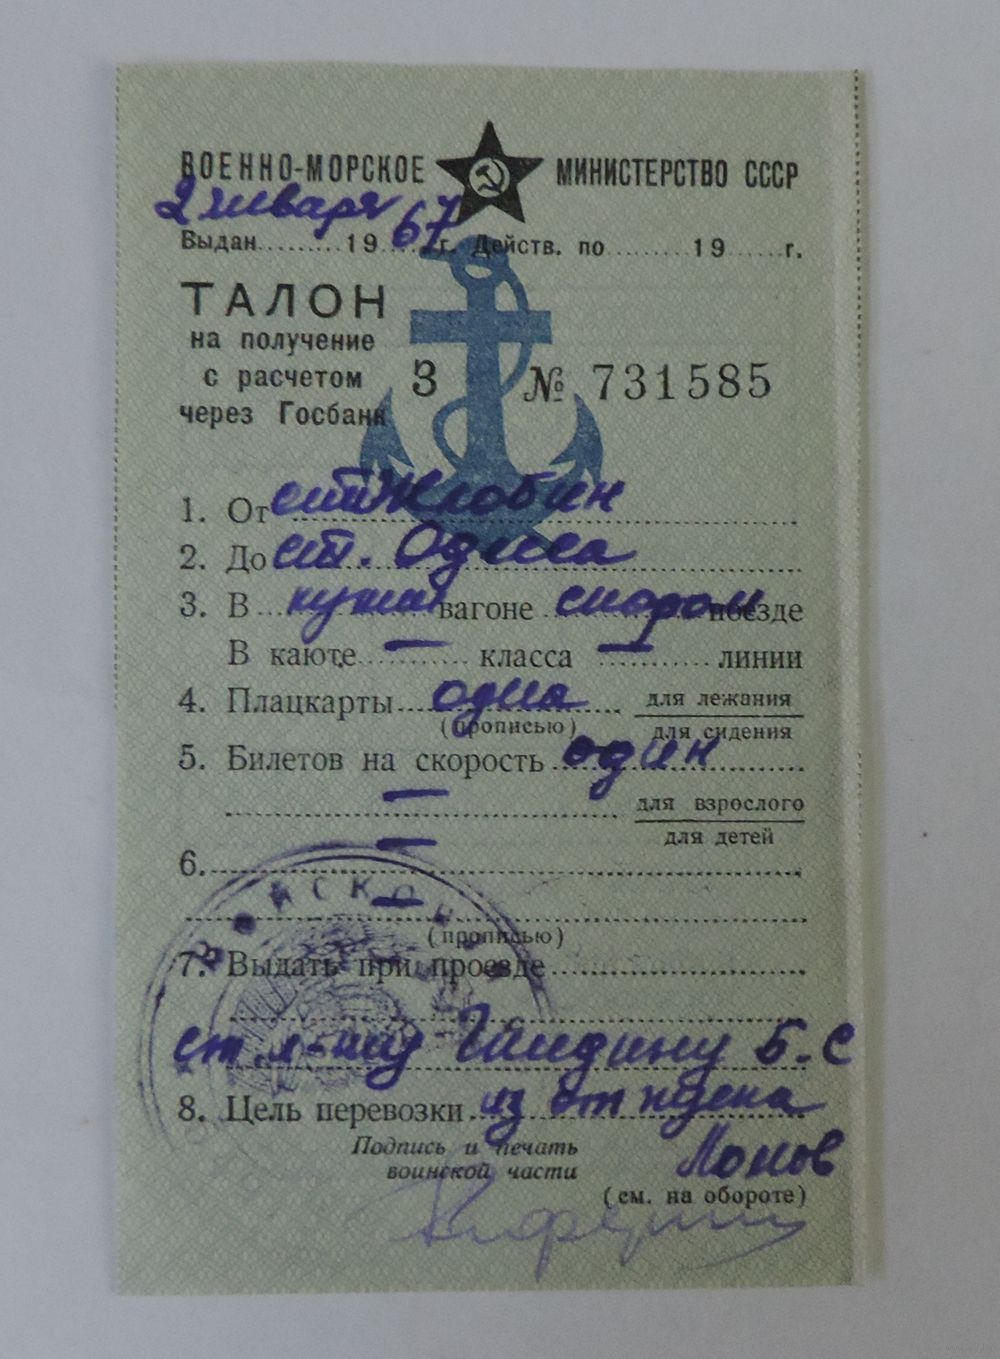 ВОЕННО-МОРСКОЕ МИНИСТЕРСТВО СССР
2 января 67
Выдан.........19....г. Действ. по.........19......г.
ТАЛОН
на получение
с расчетом
через Госбанк
З № 731585
1. От ст. Жлобин
2. До ст. Одесса
3. В купе вагоне скором поезде
В каюте — класса — линии
4. Плацкарты одна для лежания
(прописью) для сидения
5. Билетов на скорость один
— для взрослого
для детей
6. —
—
(прописью)
7. Выдать при проезде
ст. л-ту Гайдину Б. С
8. Цель перевозки из отпуска
Подпись и печать
воинской части
(см. на обороте)